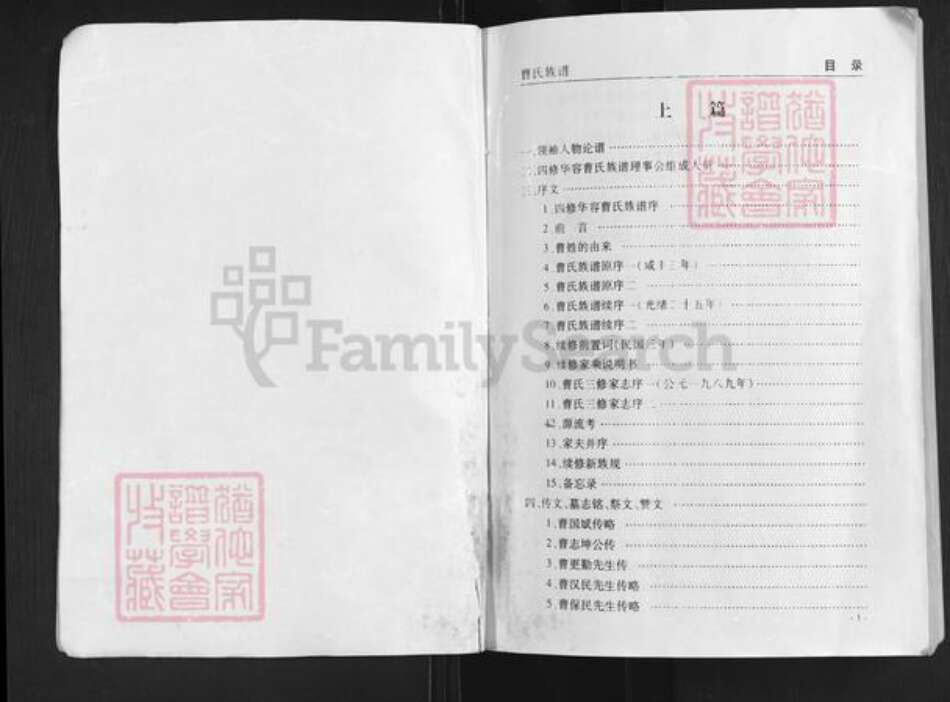 猶他家
譜學會
收藏
FamilySearch
曹氏族谱
目 录
上 篇
一、领袖人物论谱
二、四修华容曹氏族谱理事会组成人员
三、序文
1.四修华容曹氏族谱序
2.前 言
3.曹姓的由来
4.曹氏族谱原序一(咸丰三年)
5.曹氏族谱原序二
6.曹氏族谱续序一(光绪二十五年)
7.曹氏族谱续序二
8.续修前置词(民国三年)
9.续修家乘说明书
10.曹氏三修家志序一(公元一九八九年)
11.曹氏三修家志序二
12.源流考
13.家夫并序
14.续修新族规
15.备忘录
四、传文、墓志铭、祭文、赞文
1.曹国斌传略
2.曹志坤公传
3.曹更勤先生传
4.曹汉民先生传略
5.曹保民先生传略
·1·
猶他家
譜學會
收藏